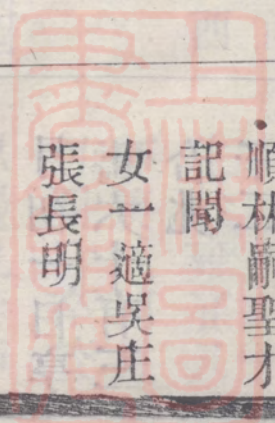 順林嗣聖才
記聞
女一適吳庄
張長明